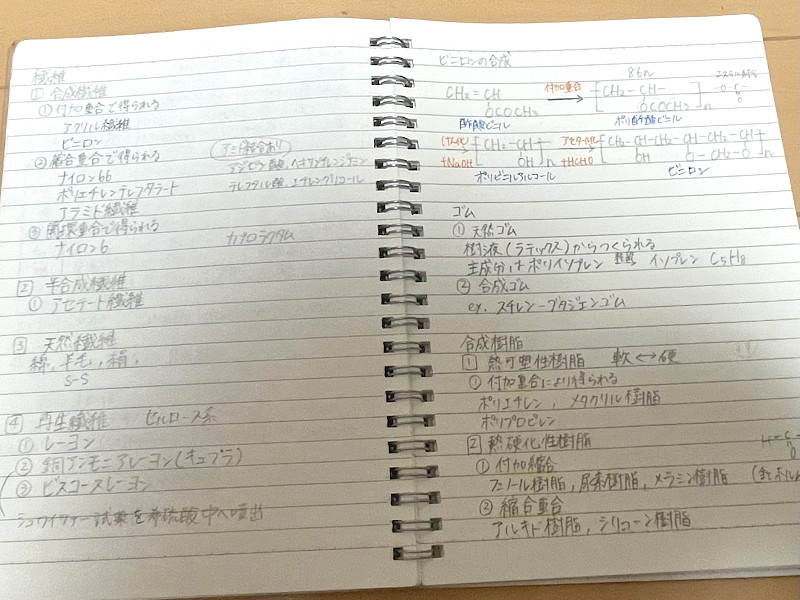 繊維
1 合成繊維
① 付加重合で得られる
アクリル繊維
ビニロン
② 縮合重合で得られる (アミド結合あり)
ナイロン66 アジピン酸、ヘキサメチレンジアミン
ポリエチレンテレフタラート テレフタル酸、エチレングリコール
アラミド繊維
③ 開環重合で得られる
ナイロン6 カプロラクタム
2 半合成繊維
① アセテート繊維
3 天然繊維
綿、羊毛、絹、
S-S
4 再生繊維 セルロース系
① レーヨン
② 銅アンモニアレーヨン(キュプラ)
③ ビスコースレーヨン
シュワイツァー試薬を希硫酸中へ噴出
ビニロンの合成
86n
CH2=CH 付加重合 [CH2-CH-]n
OCOCH3 OCOCH3
酢酸ビニル ポリ酢酸ビニル
けん化 [CH2-CH]n アセタール化 [CH2-CH-CH2-CH-CH2-CH]n
+NaOH OH +HCHO OH O-CH2-O
ポリビニルアルコール ビニロン
ゴム
① 天然ゴム
樹液(ラテックス)からつくられる
主成分はポリイソプレン イソプレン C5H8
② 合成ゴム
ex. スチレン-ブタジエンゴム
合成樹脂
1 熱可塑性樹脂 軟↔硬
① 付加重合により得られる
ポリエチレン、メタクリル樹脂
ポリプロピレン
2 熱硬化性樹脂
① 付加縮合 H-C-
O
フェノール樹脂、尿素樹脂、メラミン樹脂
② 縮合重合
アルキド樹脂、シリコーン樹脂